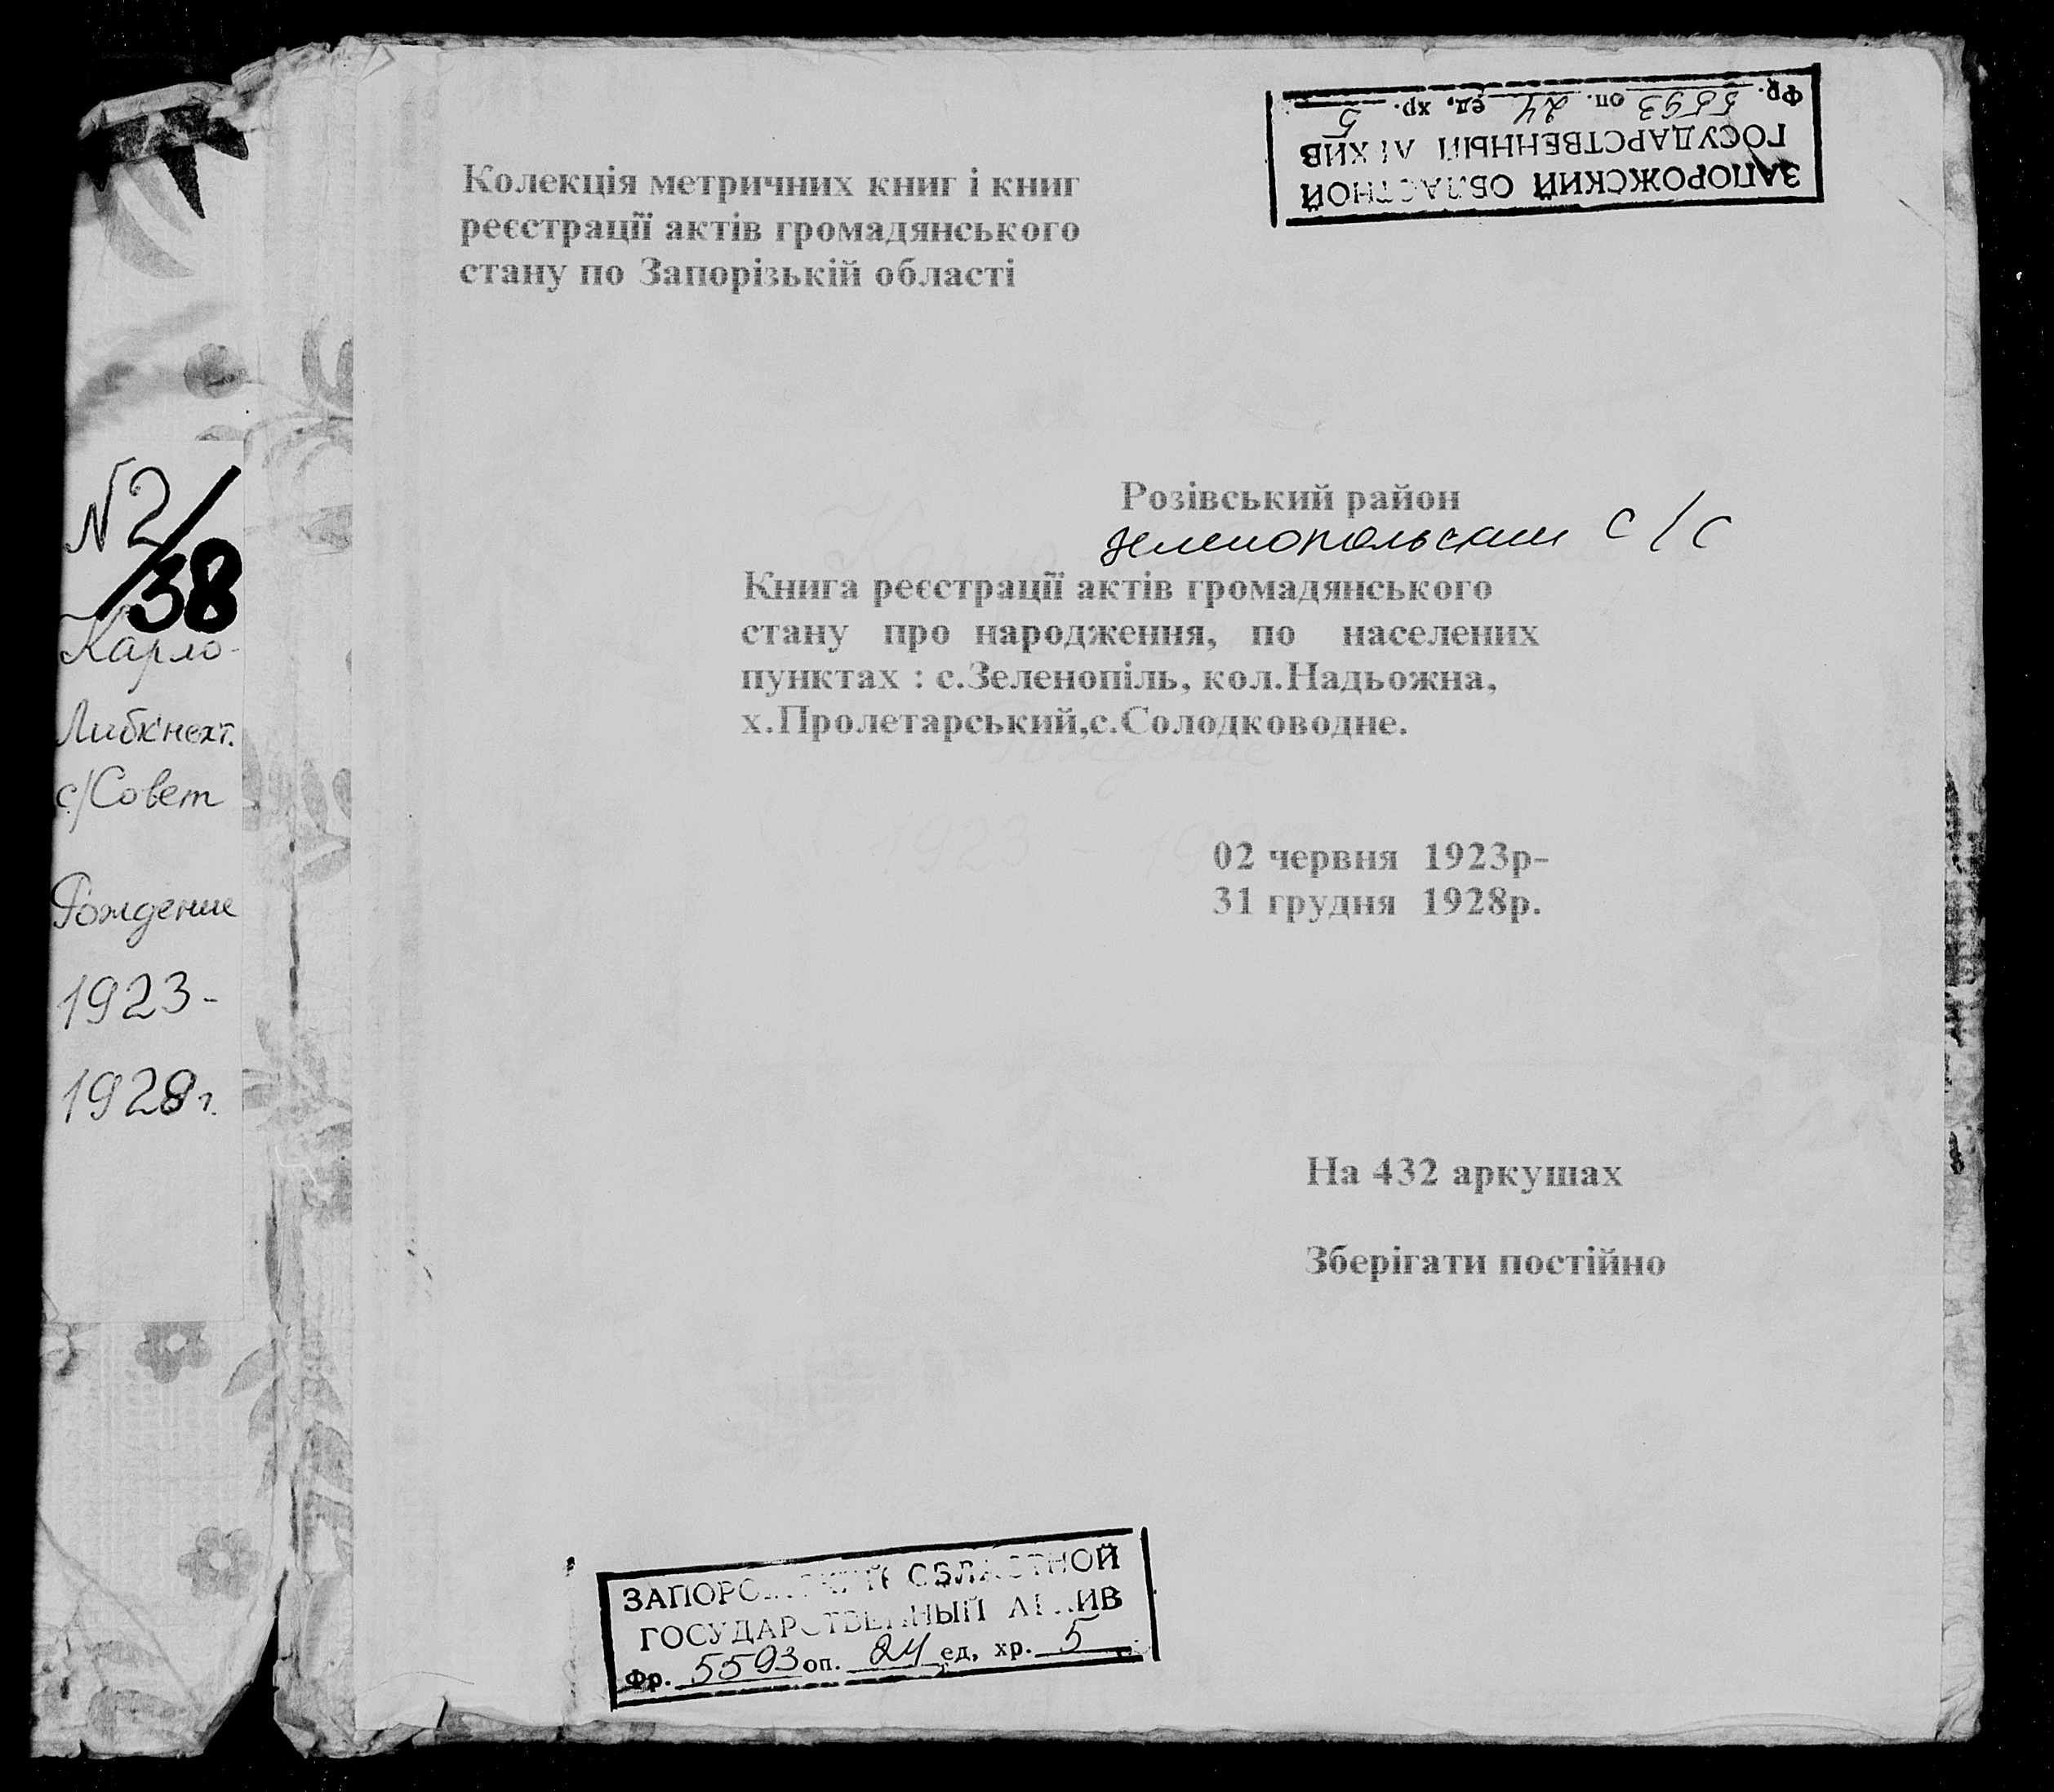 Фр. 5593 оп. 24 ед, хр. 5
ГОСУДАРСТВЕННЫЙ АРХИВ
ЗАПОРОЖСКИЙ ОБЛАСТНОЙ
Колекція метричних книг і книг
реєстрації актів громадянського
стану по Запорізькій області
Розівський район
Зеленопольский с/с
Книга реєстрації актів громадянського
стану про народження, по населених
пунктах : с.Зеленопіль, кол.Надьожна,
х.Пролетарський,с.Солодководне.
02 червня 1923р-
31 грудня 1928р.
На 432 аркушах
Зберігати постійно
ЗАПОРОЖСКИЙ ОБЛАСТНОЙ
ГОСУДАРСТВЕННЫЙ АРХИВ
Фр. 5593 оп. 24 ед, хр. 5
N2/38
Карло-
Либкнехт.
с/Совет
Рождение
1923-
1928г.